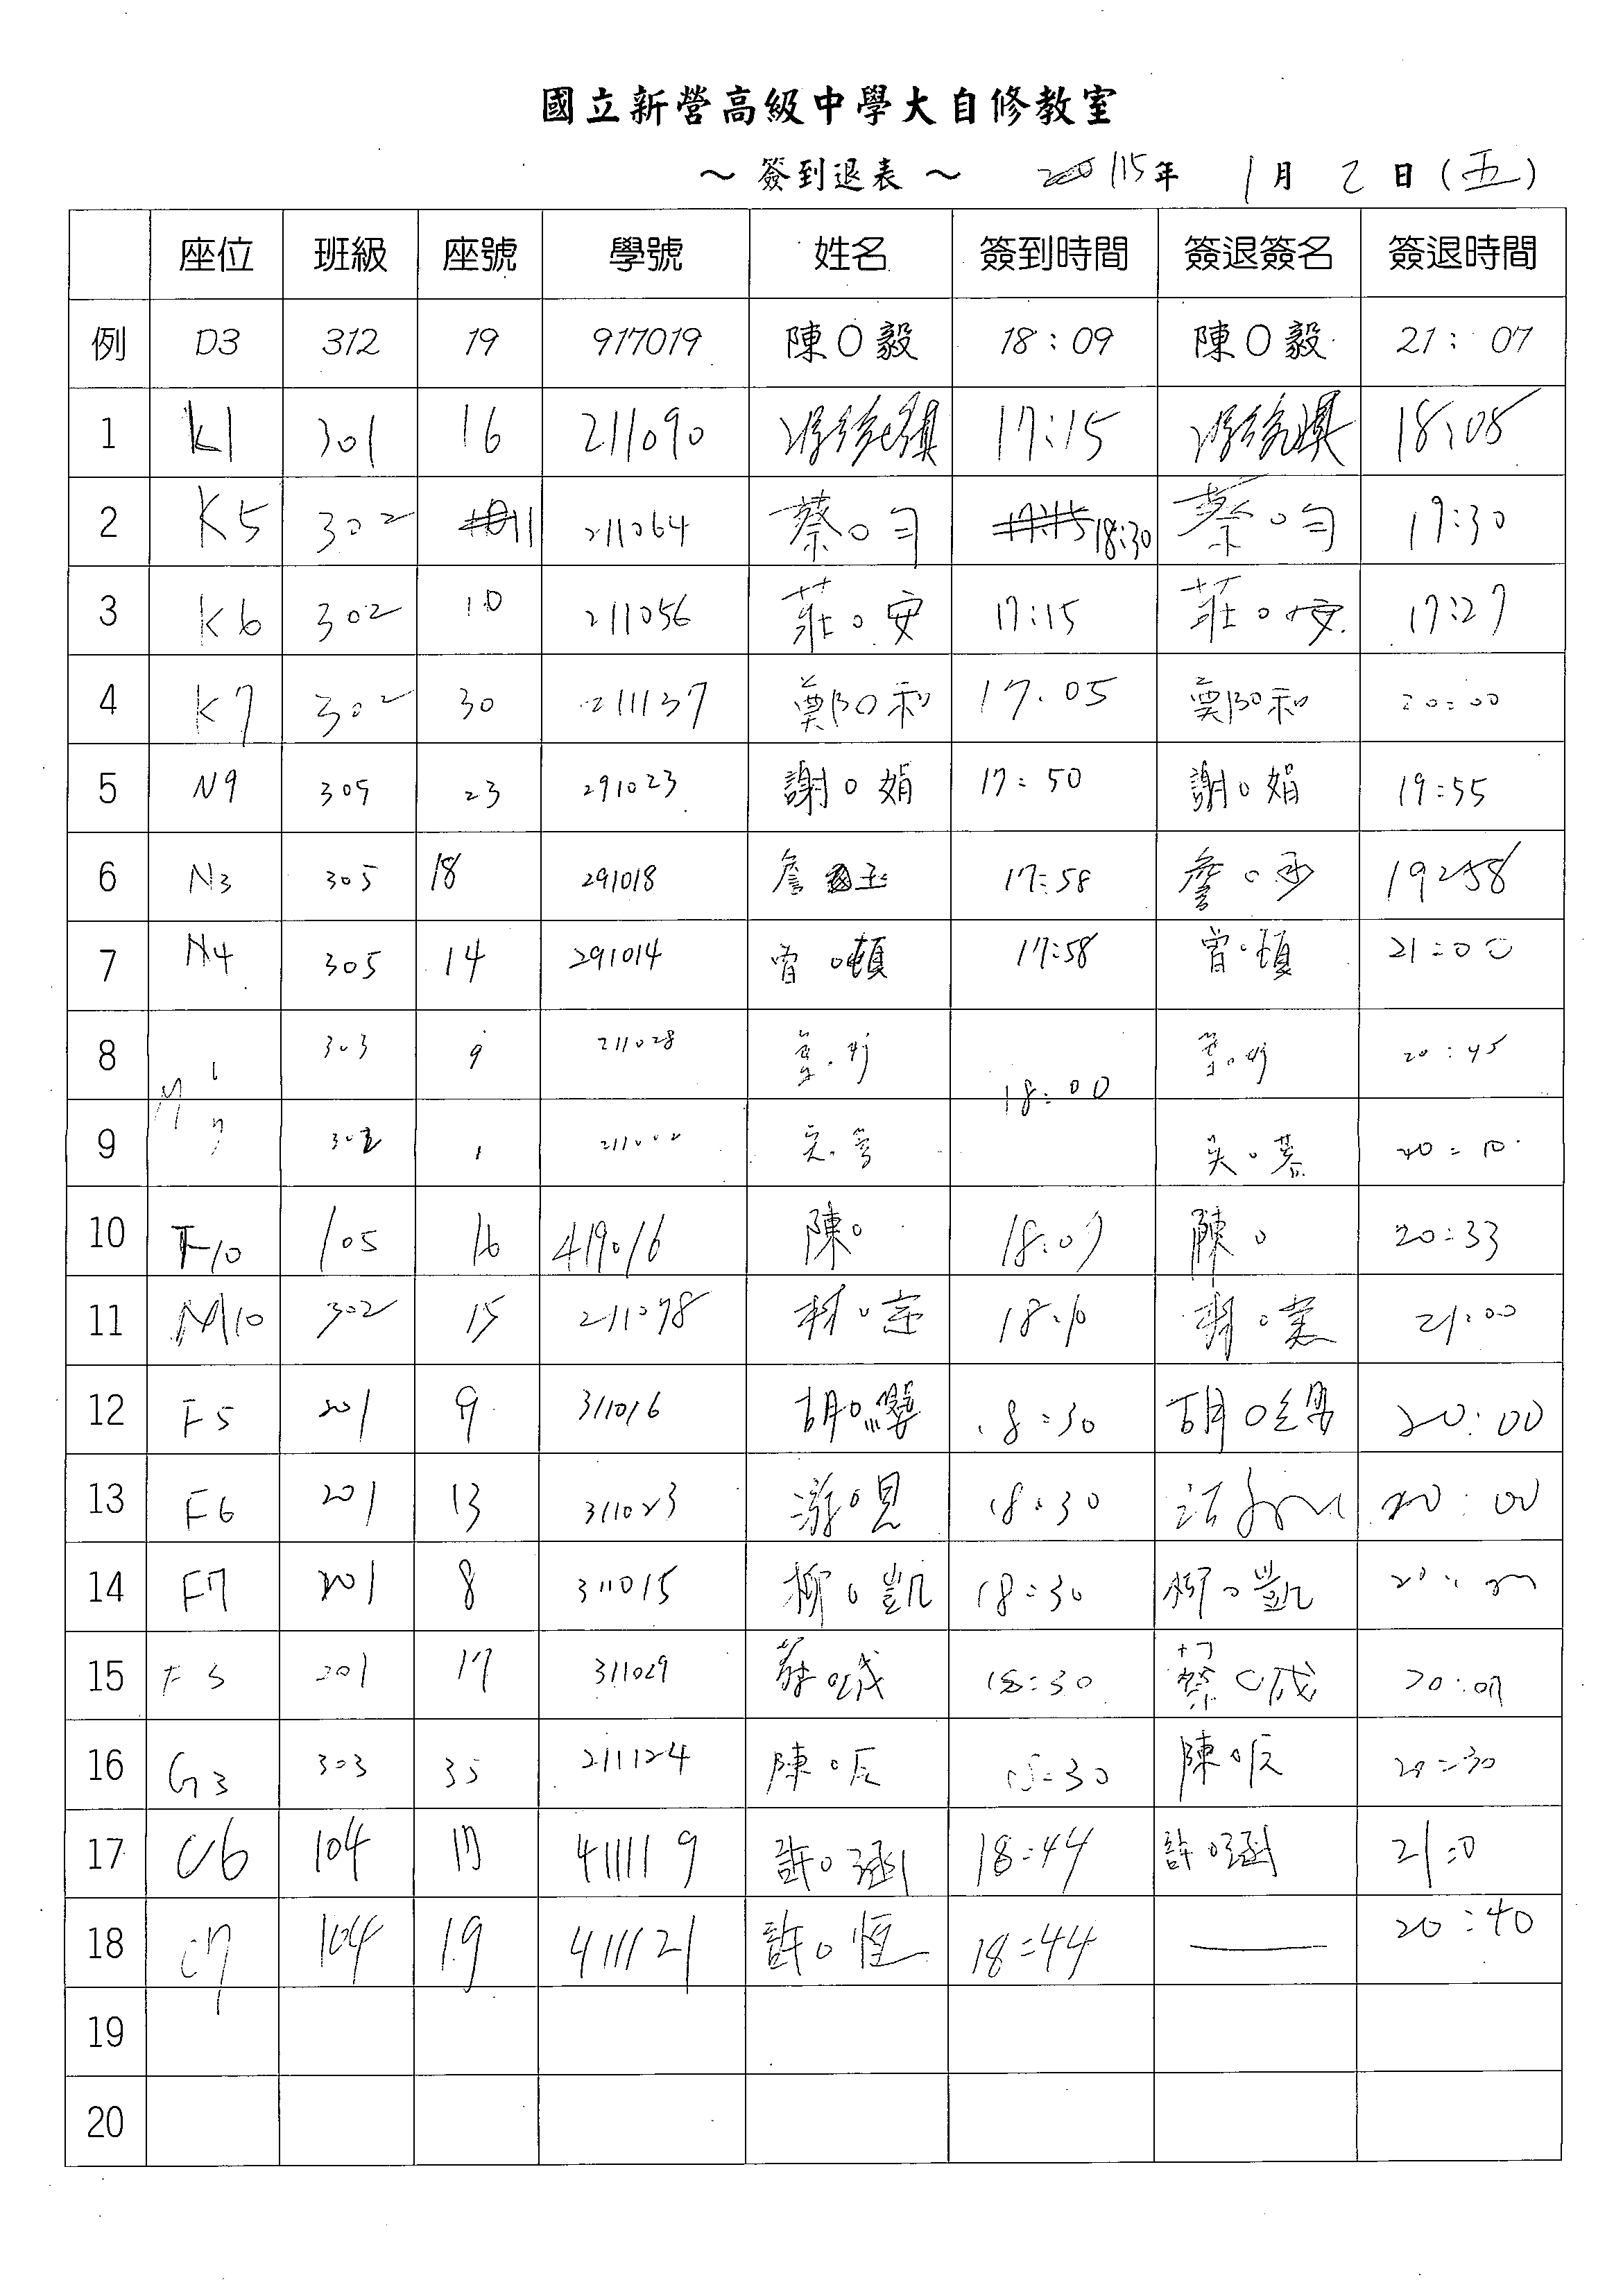 國立新營高級中學大自修教室
～簽到退表～ 115年 1月 2日(五)
座位 班級 座號 學號 姓名 簽到時間 簽退簽名 簽退時間
例 D3 312 19 917019 陳〇毅 18:09 陳〇毅 21:07
1 K1 301 16 211090 17:15 18:08
2 K5 302 11 211064 蔡〇勻 18:30 蔡〇勻 17:30
3 K6 302 10 211056 莊〇安 17:15 莊〇安 17:27
4 K7 302 30 211137 鄭〇和 17.05 鄭〇和 20:00
5 N9 305 23 291023 謝〇娟 17:50 謝〇娟 19:55
6 N3 305 18 291018 詹 17:58 詹〇 19:58
7 N4 305 14 291014 曾〇頓 17:58 曾〇頓 21:00
8 M 1 303 9 211028 18:00 20:45
9 7 302 1 211002 吳〇 20:10
10 F10 105 16 419016 陳〇 18:07 陳〇 20:33
11 M10 302 15 211078 18:10 21:00
12 F5 201 9 311016 胡〇 18:30 胡〇 20:00
13 F6 201 13 311023 游〇 18:30 20:00
14 F7 201 8 311015 柳〇凱 18:30 柳〇凱 20:
15 F3 201 17 311029 蔡〇成 18:30 蔡〇成 20:0
16 G3 303 35 211124 陳〇 :30 陳〇 20:30
17 C6 104 17 411119 許〇涵 18:44 許〇涵 21:0
18 C7 104 19 411121 許〇恆 18:44 — 20:40
19
20